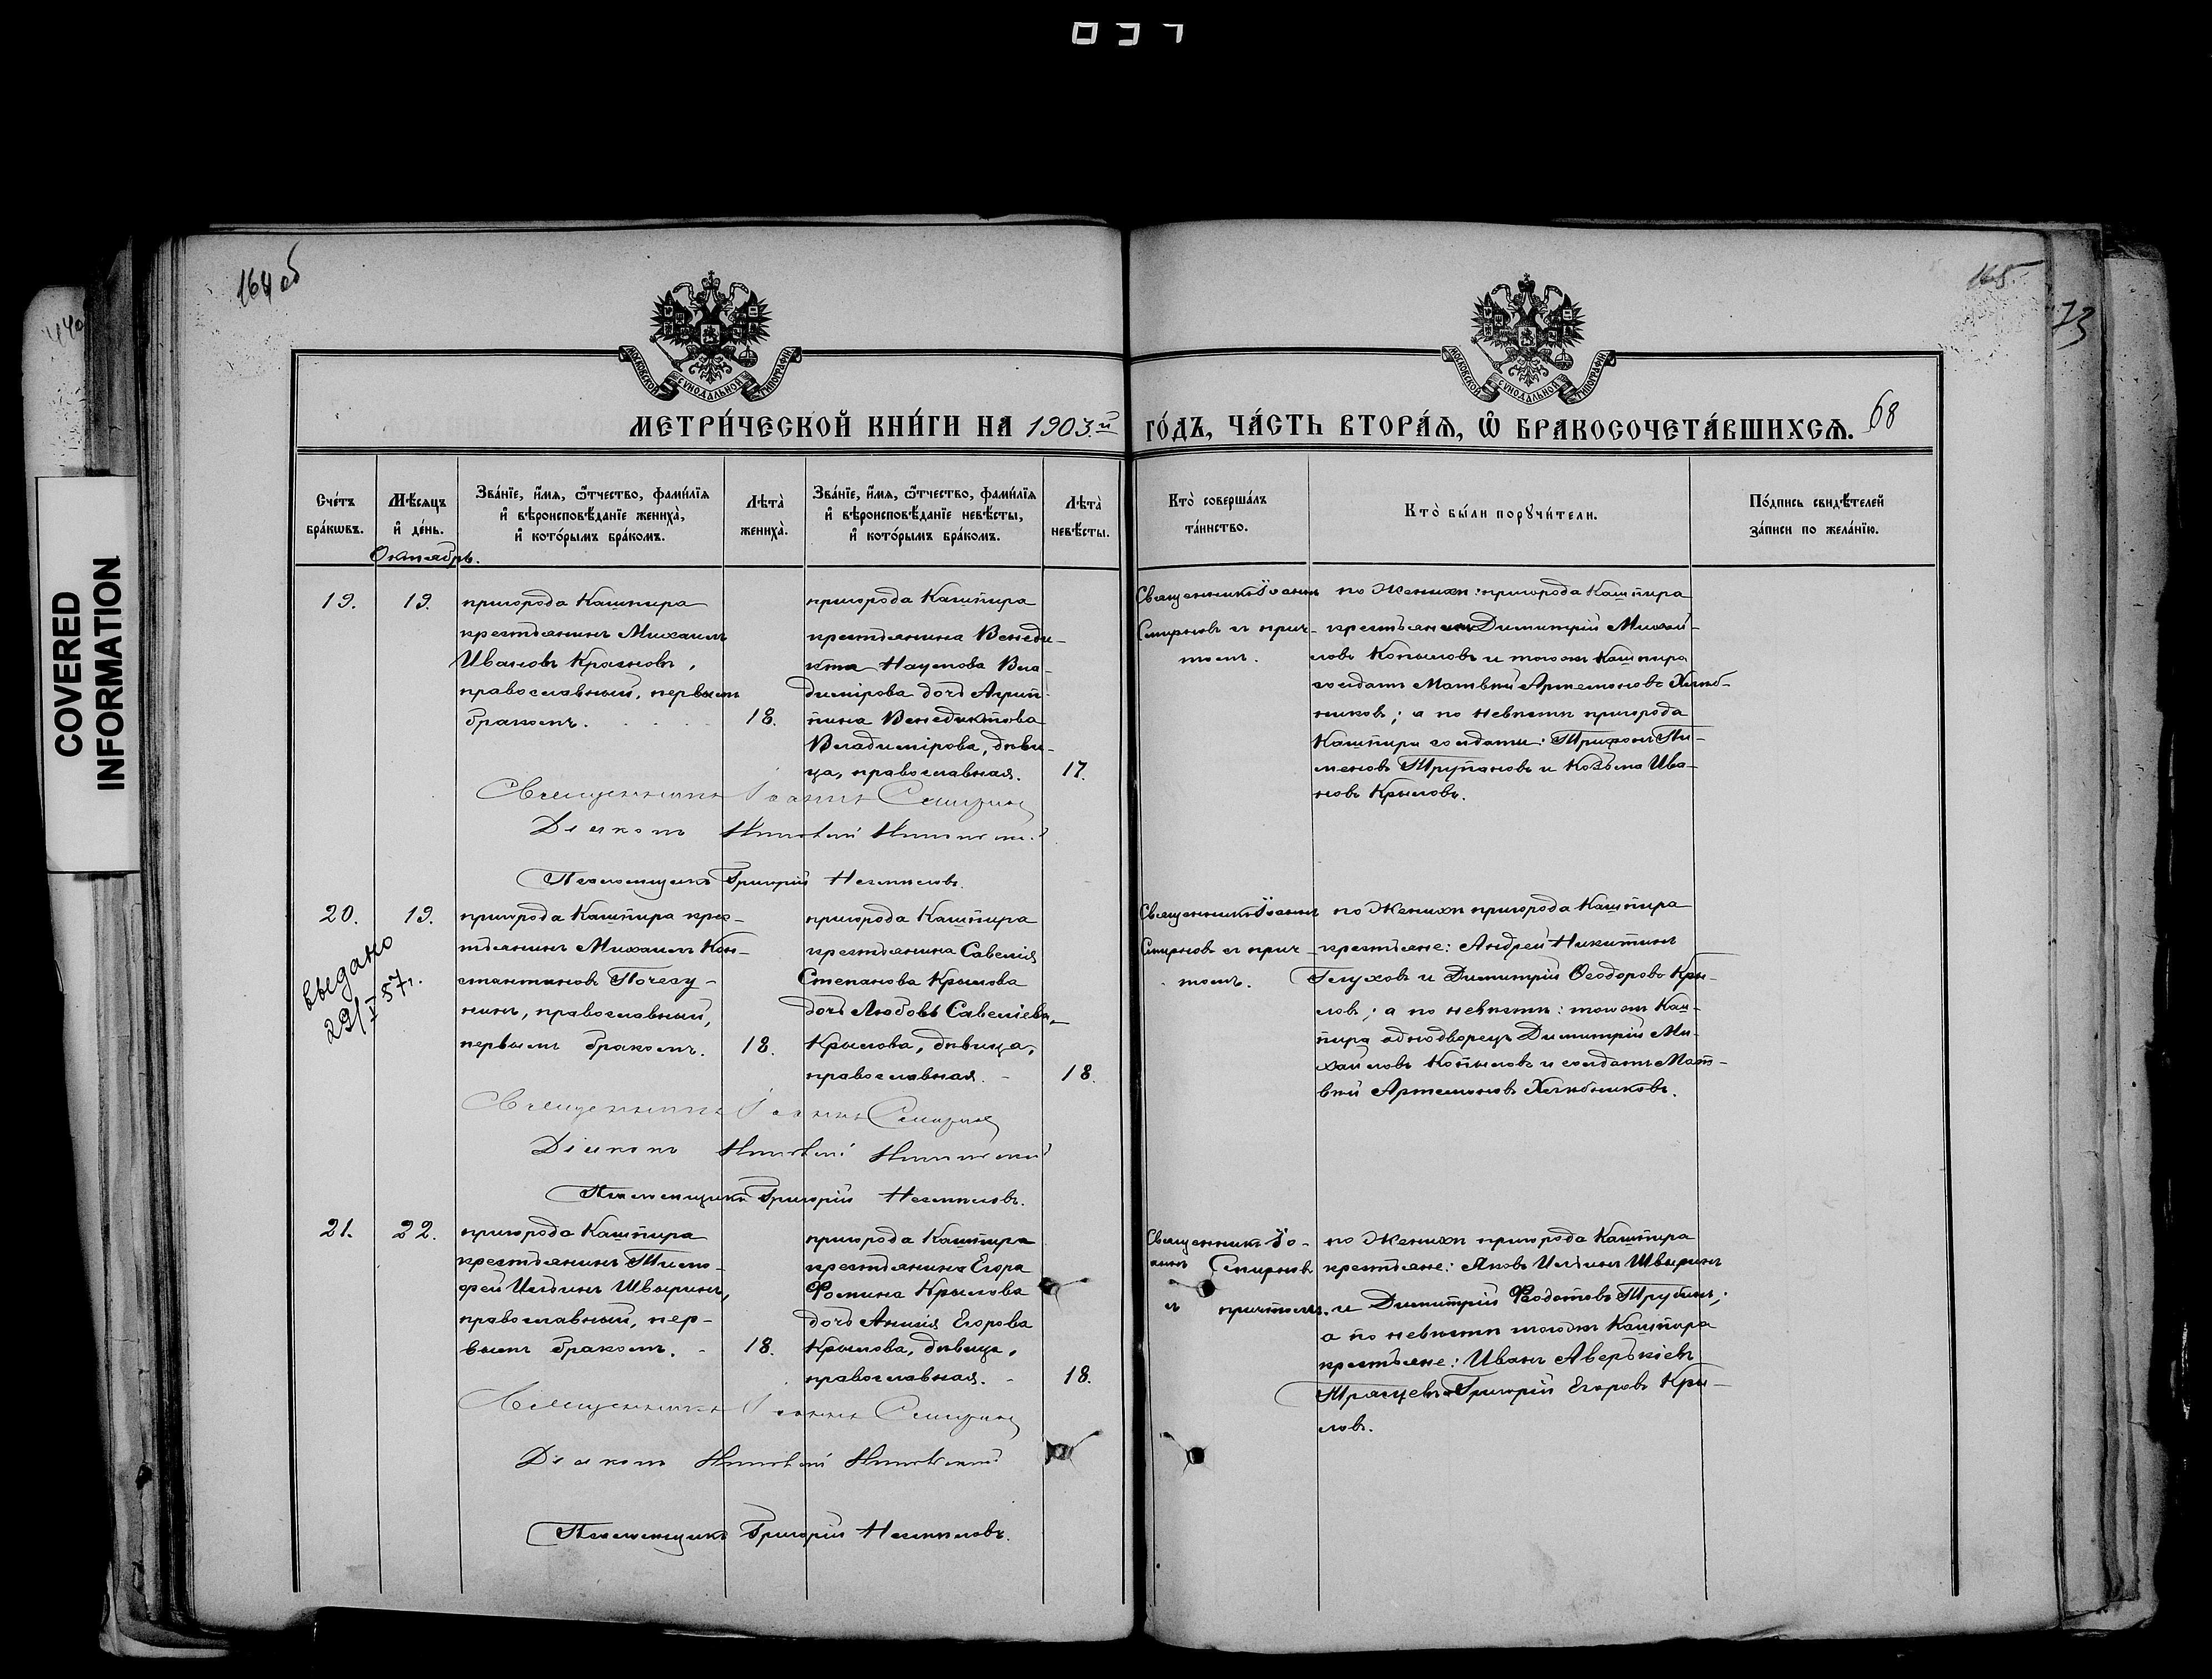 164 об
165
73
68
COVERED
INFORMATION
МОСКОВСКОЙ СѴНОДАЛЬНОЙ ТИПОГРАФІИ
МОСКОВСКОЙ СѴНОДАЛЬНОЙ ТИПОГРАФІИ
МЕТРИ́ЧЕСКОЙ КНИ́ГИ НА 1903.й ГО́ДЪ, ЧА́СТЬ ВТОРА́Ѧ, Ѡ҆ БРАКОСОЧЕТА́ВШИХСѦ.
Сче́тъ
бра́кѡвъ.
Мѣ́сяцъ
и҆ де́нь.
Октябрь.
Зва́нїе, и҆́мя, ѻ҆́тчество, фами́лїя
и҆ вѣроисповѣ́данїе жениха̀,
и҆ кото́рымъ бра́комъ.
Лѣта̀
жениха̀.
Зва́нїе, и҆́мя, ѻ҆́тчество, фами́лїя
и҆ вѣроисповѣ́данїе невѣ́сты,
и҆ кото́рымъ бра́комъ.
Лѣта̀
невѣ́сты.
Кто̀ соверша́лъ
та́инство.
Кто̀ бы́ли порꙋчи́тели.
По́дпись свидѣ́телей
за́писи по жела́нїю.
19.
19.
пригорода Кашпира
крестьянинъ Михаилъ
Ивановъ Красновъ,
православный, первымъ
бракомъ.
18.
пригорода Кашпира
крестьянина Венеди-
кта Наумова Вла-
димірова дочь Агрип-
пина Венедиктова
Владимірова, дѣви-
ца, православная.
17.
Священникъ Іоаннъ
Смирновъ съ прич-
томъ.
по Женихѣ: пригорода Кашпира
Димитрій Михай-
ловъ Копыловъ и тогоже Кашпира
солдатъ Матвѣй Артемоновъ Хлѣб-
никовъ; а по невѣстѣ пригорода
Кашпира солдаты: Трифонъ Пи-
меновъ Трупановъ и Козьма Ива-
новъ Крыловъ.
Священникъ Іоаннъ Смирновъ
Діаконъ
Псаломщикъ Григорій
20.
19.
выдано
29/I 57 г.
пригорода Кашпира крес-
тьянинъ Михаилъ Кон-
стантиновъ Почезу-
нинъ, православный,
первымъ бракомъ.
18.
пригорода Кашпира
крестьянина Савелія
Степанова Крылова
дочь Любовь Савеліева
Крылова, дѣвица,
православная.
18.
Священникъ Іоаннъ
Смирновъ съ прич-
томъ.
по Женихѣ пригорода Кашпира
крестьяне: Андрей Никитинъ
Глуховъ и Димитрій Ѳеодоровъ Кры-
ловъ; а по невѣстѣ: тогоже Каш-
пира однодворецъ Димитрій Ми-
хайловъ Копыловъ и солдатъ Мат-
вѣй Артемоновъ Хлѣбниковъ.
Священникъ Іоаннъ Смирновъ
Діаконъ
Псаломщикъ Григорій
21.
22.
пригорода Кашпира
крестьянинъ Тимо-
фей Ильинъ Швыринъ,
православный, пер-
вымъ бракомъ.
18.
пригорода Кашпира
крестьянина Егора
Фомина Крылова
дочь Анисія Егорова
Крылова, дѣвица,
православная.
18.
Священникъ Іо-
аннъ Смирновъ
съ причтомъ.
по Женихѣ пригорода Кашпира
крестьяне: Яковъ Ильинъ Швыринъ
и Димитрій Ѳедотовъ Трубинъ;
а по невѣстѣ тогоже Кашпира
крестьяне: Иванъ Аверькіевъ
Григорій Егоровъ Кры-
ловъ.
Священникъ Іоаннъ Смирновъ
Діаконъ
Псаломщикъ Григорій